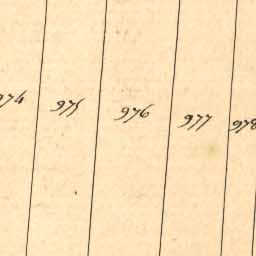 974 975 976 977 978